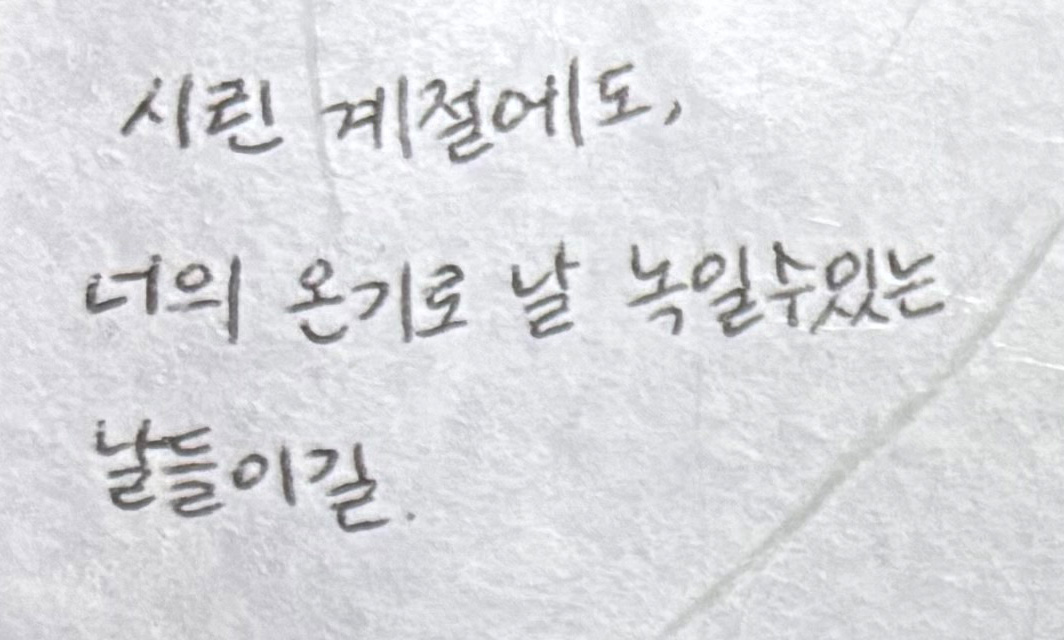 시린 계절에도,
너의 온기로 날 녹일수있는
날들이길.